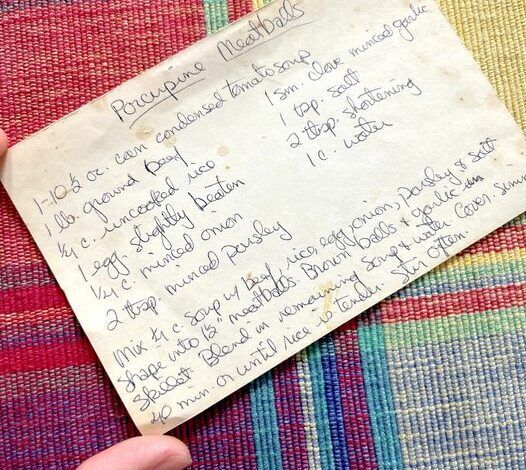 Porcupine Meatballs
1-10½ oz. can condensed tomato soup
1 lb. ground beef
¼ c. uncooked rice
1 egg slightly beaten
¼ c. minced onion
2 tbsp. minced parsley
1 sm. clove minced garlic
1 tsp. salt
2 tbsp. shortening
1 c. water
Mix ¼ c. soup w/ beef, rice, egg, onion, parsley & salt
shape into 1½" meatballs. Brown balls & garlic in
skillet. Blend in remaining soup & water. Cover. Simm
40 min. or until rice is tender. Stir often.